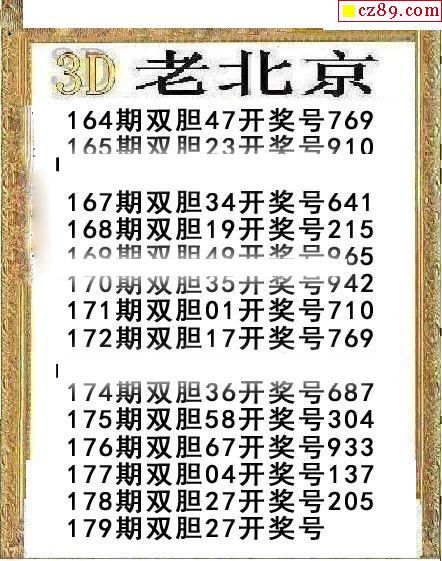 cz89.com
3D 老北京
164期双胆47开奖号769
165期双胆23开奖号910
167期双胆34开奖号641
168期双胆19开奖号215
169期双胆49开奖号965
170期双胆35开奖号942
171期双胆01开奖号710
172期双胆17开奖号769
174期双胆36开奖号687
175期双胆58开奖号304
176期双胆67开奖号933
177期双胆04开奖号137
178期双胆27开奖号205
179期双胆27开奖号